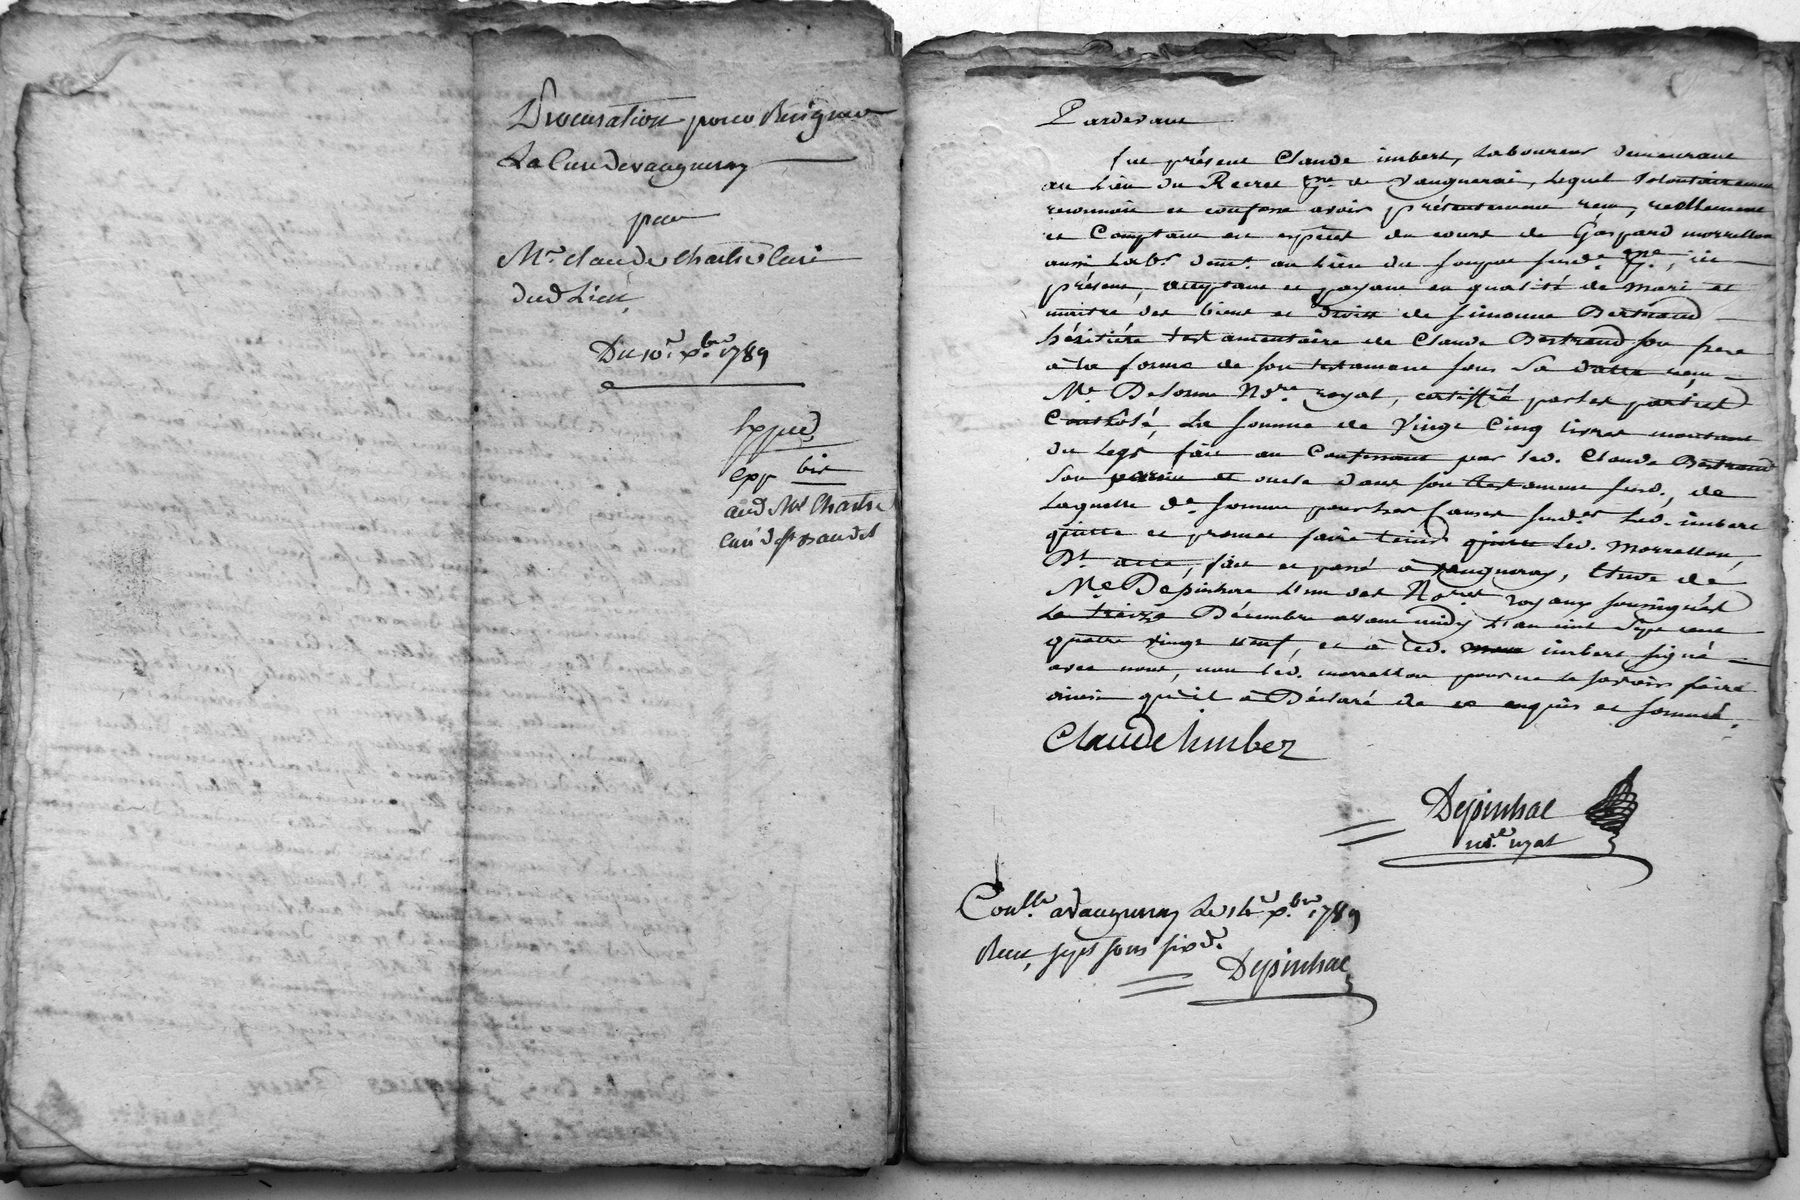 Procuration pour Resigner
La Cure de vaugneray
par
Mr. claude Chartre Curé
dud Lieu
Du 10e. xbre 1789
Exped
exp bis
aud Mr Chartre
Curé d
Pardevant
fut présent Claude imbert, Laboureur demeurant
au Lieu du Recret psse de Vaugnerai, Lequel volontairement
reconnoit et confesse avoir présentement reçu, reellement
et Comptant en espèces du cours de Gaspard morrellon
aussi Labr. demt. au Lieu du susde. psse, ici
présent, acceptant et payant en qualité de mari et
maitre des biens et droits de simonne Bertrand
héritière testamentaire de Claude Bertrand son frere
à la forme de son testament sous sa datte reçu
Me Delorme Nore. royal, certiffié par les parties
Controlé, La somme de Vingt Cinq livres montant
du Legs fait au Confessant par led. Claude Bertrand
son parrin et oncle dans son testament susd., de
Laquelle de. somme pour les causes susdes Led. imbert
quitte et promet faire tenir quitte led. morrellon,
Dt. acte, fait et passé à vaugneray, Etude de
Me Depinhac L'un des Nores royaux soussignés
Le treize Décembre avant midy L'an mil Sept cent
quatre vingt neuf, et à led. imbert signé
avec nous, non led. morrellon pour ne le savoir faire
ainsi qu'il à Déclaré de ce enquis et sommé.
Claude Imbez
Depinhac
nore. royal
Conllé. a Vaugneray Le 14e xbre 1789
Recu, sept sous six d.
Depinhac